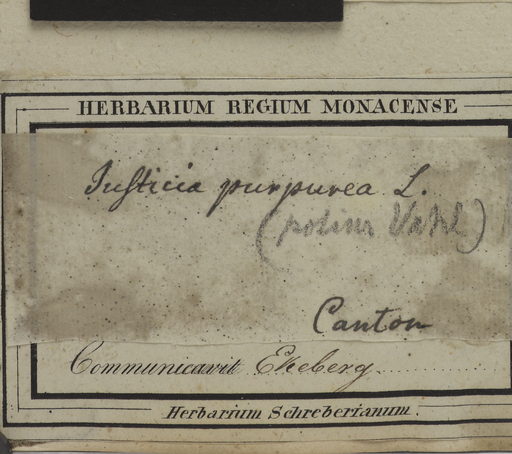 HERBARIUM REGIUM MONACENSE
Justicia purpurea L.
(potius Vahl)
Canton
Communicavit Ekeberg
Herbarium Schreberianum.